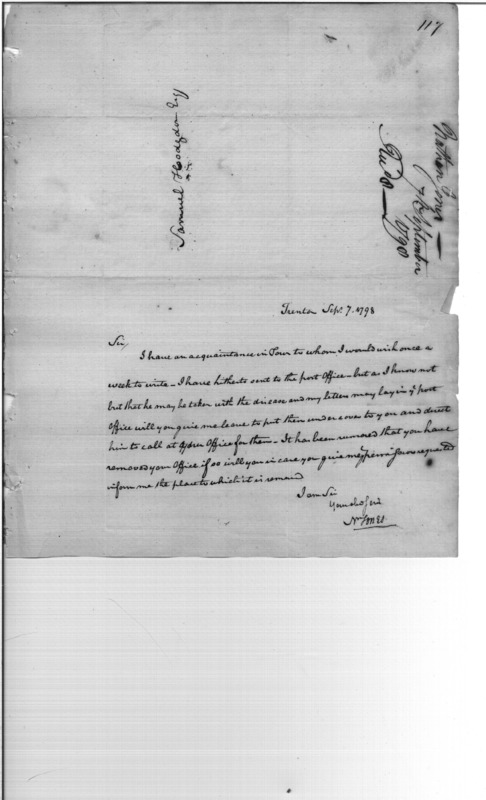 117
Samuel Hodgdon Esqr
Nathan Jones
7 September
1798
Trenton Sepr. 7. 1798
Sir,
I have an acquaintance in Town to whom I would wish once a
week to write – I have hitherto sent to the post Office – but as I know not
but that he may be taken with the disease and my letters may lay in ye post
Office will you give me leave to put them under cover to you and direct
him to call at your Office for them – It has been rumored that you have
removed your Office if so will you in case you give me permission requested
inform me the place to which it is removed
I am Sir
Jones